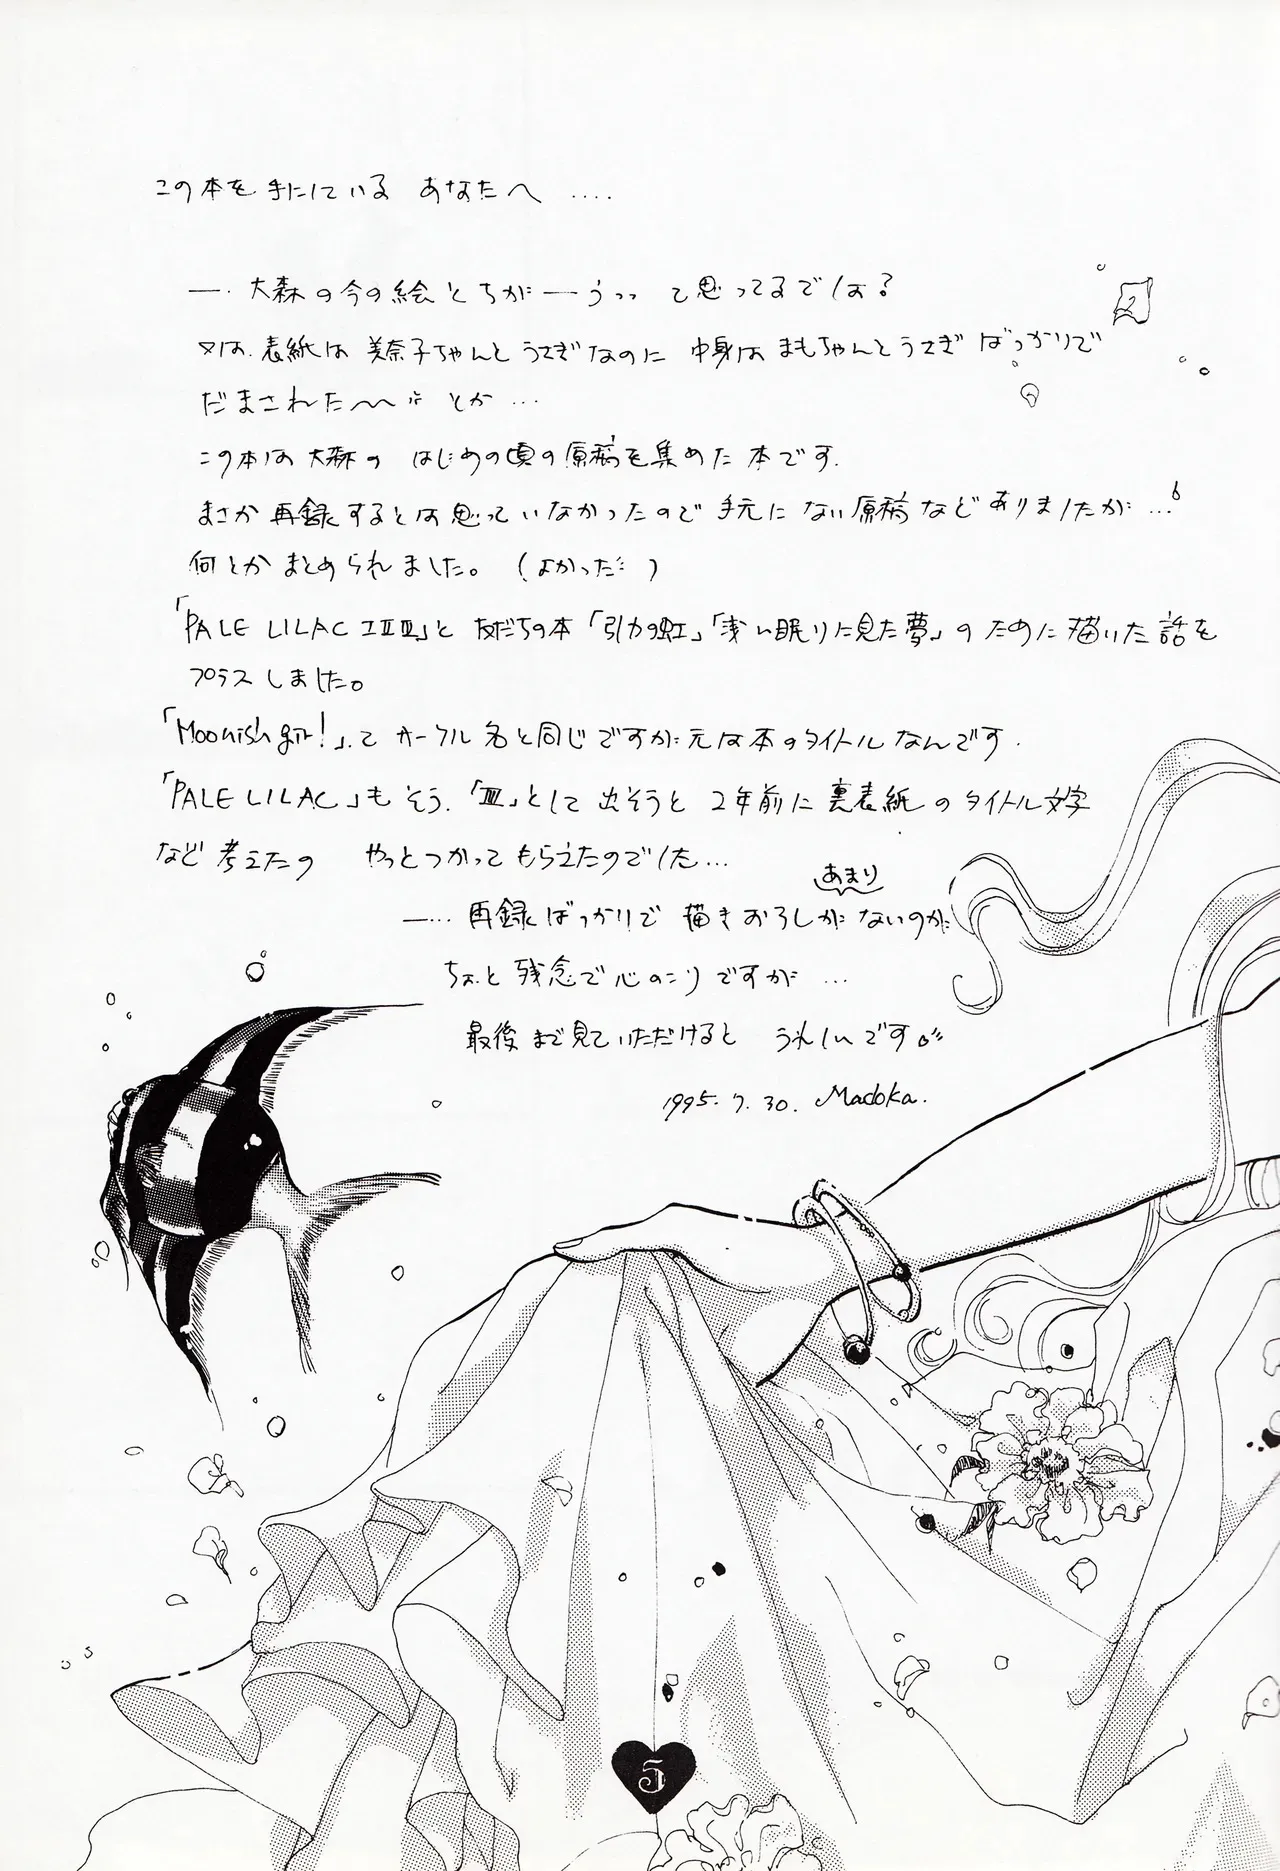 この本を手にしている あなたへ ‥‥
―‥ 大森の今の絵とちが―うっっ て思ってるでしょ?
又は、表紙は 美奈子ちゃんと うさぎなのに 中身は まもちゃんとうさぎ ばっかりで
だまされた〜〜 とか …
この本は 大森の はじめの頃の原稿を集めた 本です.
まさか 再録するとは思っていなかったので 手元に ない原稿などありましたが …
何とか まとめられました。 (よかった)
「PALE LILAC I II III」と 友だちの本「引力の虹」「浅い眠りに見た夢」のために描いた話を
プラスしました。
「Moonish girl!」って サークル名と同じですが 元は本のタイトルなんです.
「PALE LILAC」も そう.「III」として 出そうと 2年前に 裏表紙のタイトル文字
など 考えたの やっとつかって もらえたのでした…
あまり
―‥‥ 再録ばっかりで 描きおろしが ないのが
ちょっと 残念で 心のこりですが …
最後まで見ていただけると うれしいです
1995. 7. 30. Madoka.
5